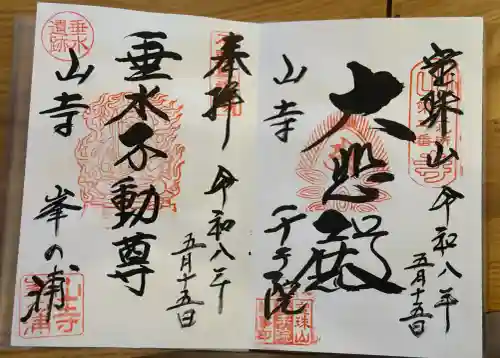 宝珠山
令和八年
五月十五日
大悲殿
山寺
千手院
奉拝
令和八年
五月十五日
垂水不動尊
山寺
峯の浦
垂水
遺跡